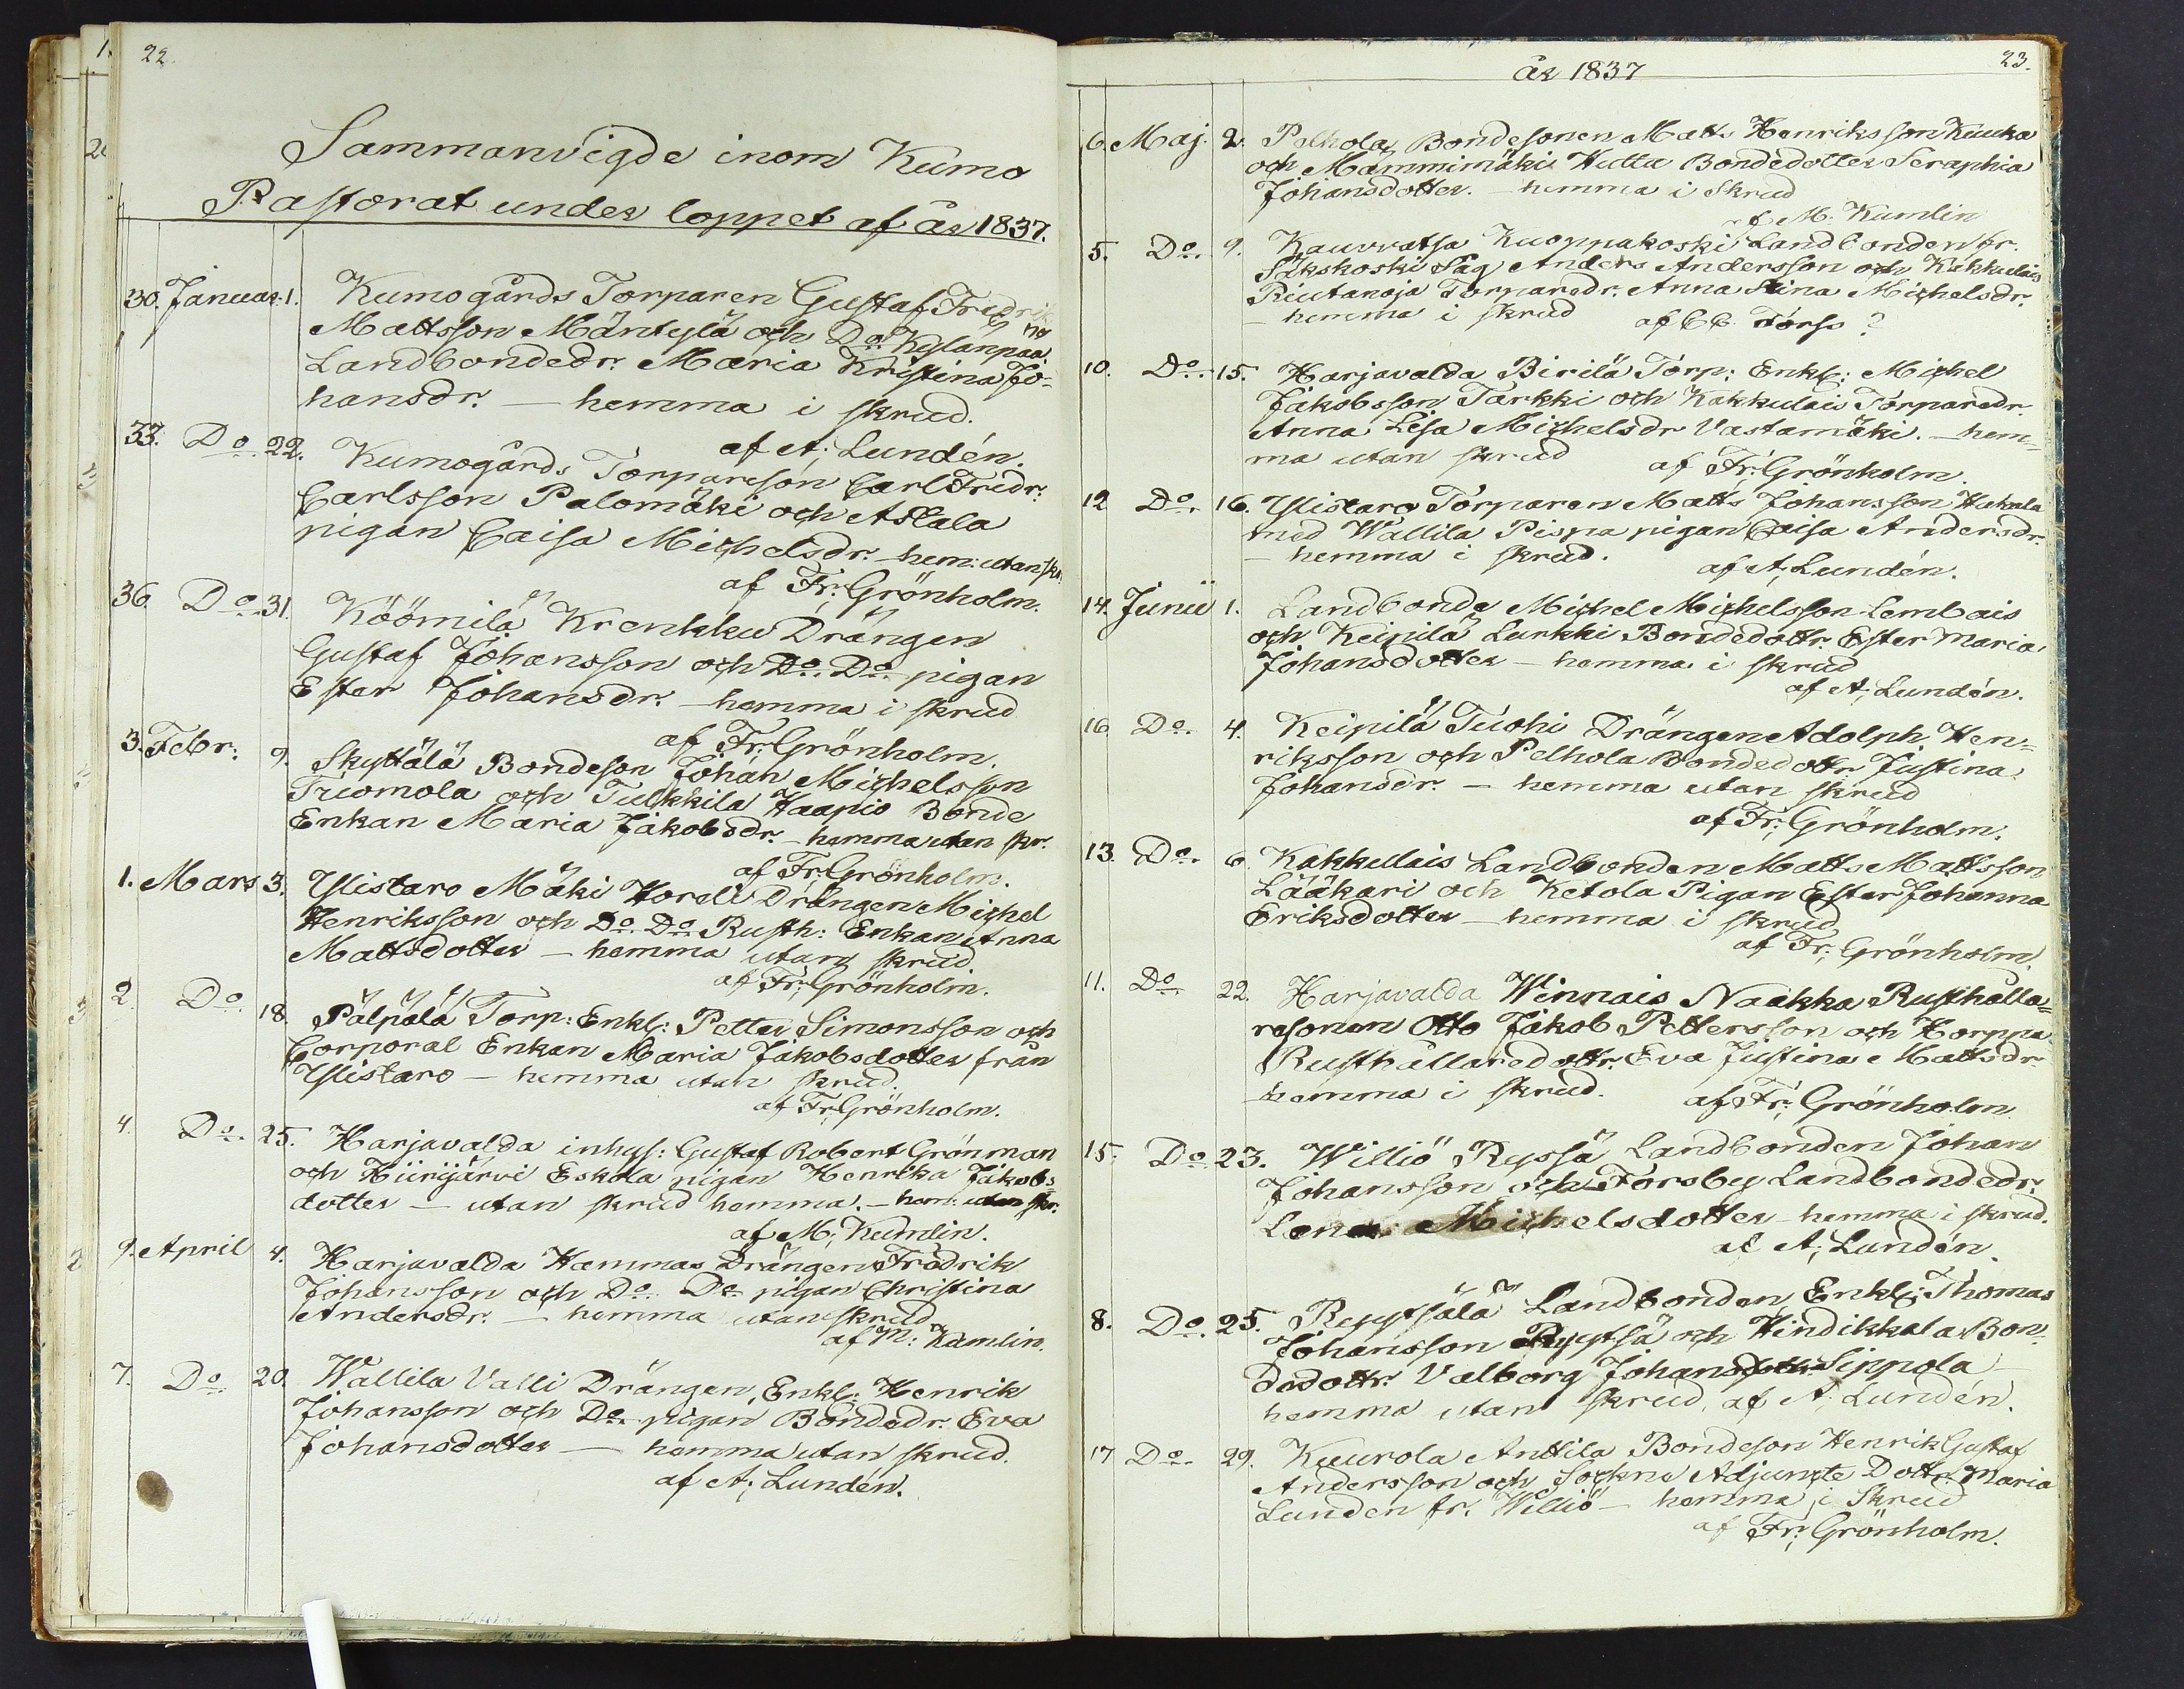 22.
Sammanvigde inom Kumo
Pastorat under loppet af år 1837.
30. Januar. 1. Kumogårds Torparen Gustaf Fredrik
Mattsson Mäntylä och Do Kylänpää
Landbondedr. Maria Kristina Jo=
hansdr. — hemma i skrud.
af A; Lundén.
33. Do. 22. Kumogårds Torpareson Carl Fridr.
Carlsson Palomäki och Aslala
pigan Caisa Michelsdr. hem: utan skr.
af Fr: Grönholm.
36. Do. 31. Köömilä Krenkku Drängen
Gustaf Johansson och Do. Do. pigan
Ester Johansdr. — hemma i skrud
af Fr: Grönholm.
3. Febr: 9. Skyttälä Bondeson Johan Michelsson
Triomola och Tulkkila Haapio Bonde
Enkan Maria Jakobsdr. — hemma utan skr.
af Fr: Grönholm.
1. Mars 3. Ylistaro Mäki Hordli Drängen Michel
Henriksson och Do. Do. Rusth: Enkan Anna
Mattsdotter — hemma utan skrud.
af Fr; Grönholm.
2. Do. 18. Pälpälä Torp: Enkl: Petter Simonsson och
Corporal Enkan Maria Jakobsdotter från
Ylistaro — hemma utan skrud.
af Fr; Grönholm.
4. Do. 25. Harjavalda inhys: Gustaf Robert Grönman
och Hiirijärvi Eskola pigan Henrika Jakobs=
dotter — utan skrud hemma. — hem: utan skr.
af M; Kumlin.
9. April 4. Harjavalda Hammas Drängen Fredrik
Johansson och Do. Do pigan Christina
Andersdr. — hemma utan skrud
af M: Kumlin.
7. Do 20. Wallila Valli Drängen, Enkl: Henrik
Johansson och Do. pigan Bondedr. Eva
Johansdotter — hemma utan skrud.
af A; Lundén.
år 1837
23.
6. Maj. 2. Pelhola Bondesonen Matts Henriksson Kuuka
och Mammimäki Huttu Bondedotter Seraphia
Johansdotter. — hemma i skrud
af M. Kumlin
5. Do. 9. Kauvvatsa Kuoppakoski Landbonden fr.
Säkskoski Såg Anders Andersson och Kakkulais
Riutanoja Torparedr. Anna Stina Michelsdr.
— hemma i skrud af CC. Torss?
10. Do. 15. Harjavalda Birilä Torp: Enkl: Michel
Jakobsson Tarkki och Kakkulais Torparedr.
Anna Lisa Michelsdr Vastamäki. — hem=
ma utan skrud af Fr: Grönholm.
12 Do. 16. Ylistaro Torparen Matts Johansson Hakala
med Wallila Pispa pigan Caisa Andersdr.
— hemma i skrud. af A; Lundén.
14. Junii 1. Landbonde Michel Michelsson Lembais
och Keipilä Lurkki Bondedottr. Ester Maria
Johansdotter — hemma i skrud
af A; Lundén.
16 Do. 4. Keipilä Tuohi Drängen Adolph Hen=
riksson och Pelhola Bondedottr Justina
Johansdr. — hemma utan skrud
af Fr; Grönholm.
13. Do. 6. Kakkullais Landbonden Matts Mattsson
Lääkari och Ketola Pigan Ester Johanna
Eriksdotter — hemma i skrud
af Fr; Grönholm.
11. Do. 22. Harjavalda Winnais Naakka Rusthålla=
resonen Otto Jakob Pettersson och Torppa
Rusthållaredottr. Eva Justina Mattsdr.
hemma i skrud. af Fr: Grönholm.
15. Do. 23. Williö Ryssä Landbonden Johan
Johansson och Forsby Landbondedr.
Lena Michelsdotter — hemma i skrud.
af A; Lundén.
8. Do. 25. Ryytsälä Landbonden Enkl: Thomas
Johansson Ryytsä och Hindikkala Bon=
dedottr. Valborg Johansdottr Sippola
hemma utan skrud, af A; Lundén.
17 Do. 29. Kuurola Anttila Bondeson Henrik Gustaf
Andersson och Sockne Adjuncte Dottr. Maria
Lunden fr. Williö — hemma i skrud
af Fr; Grönholm.